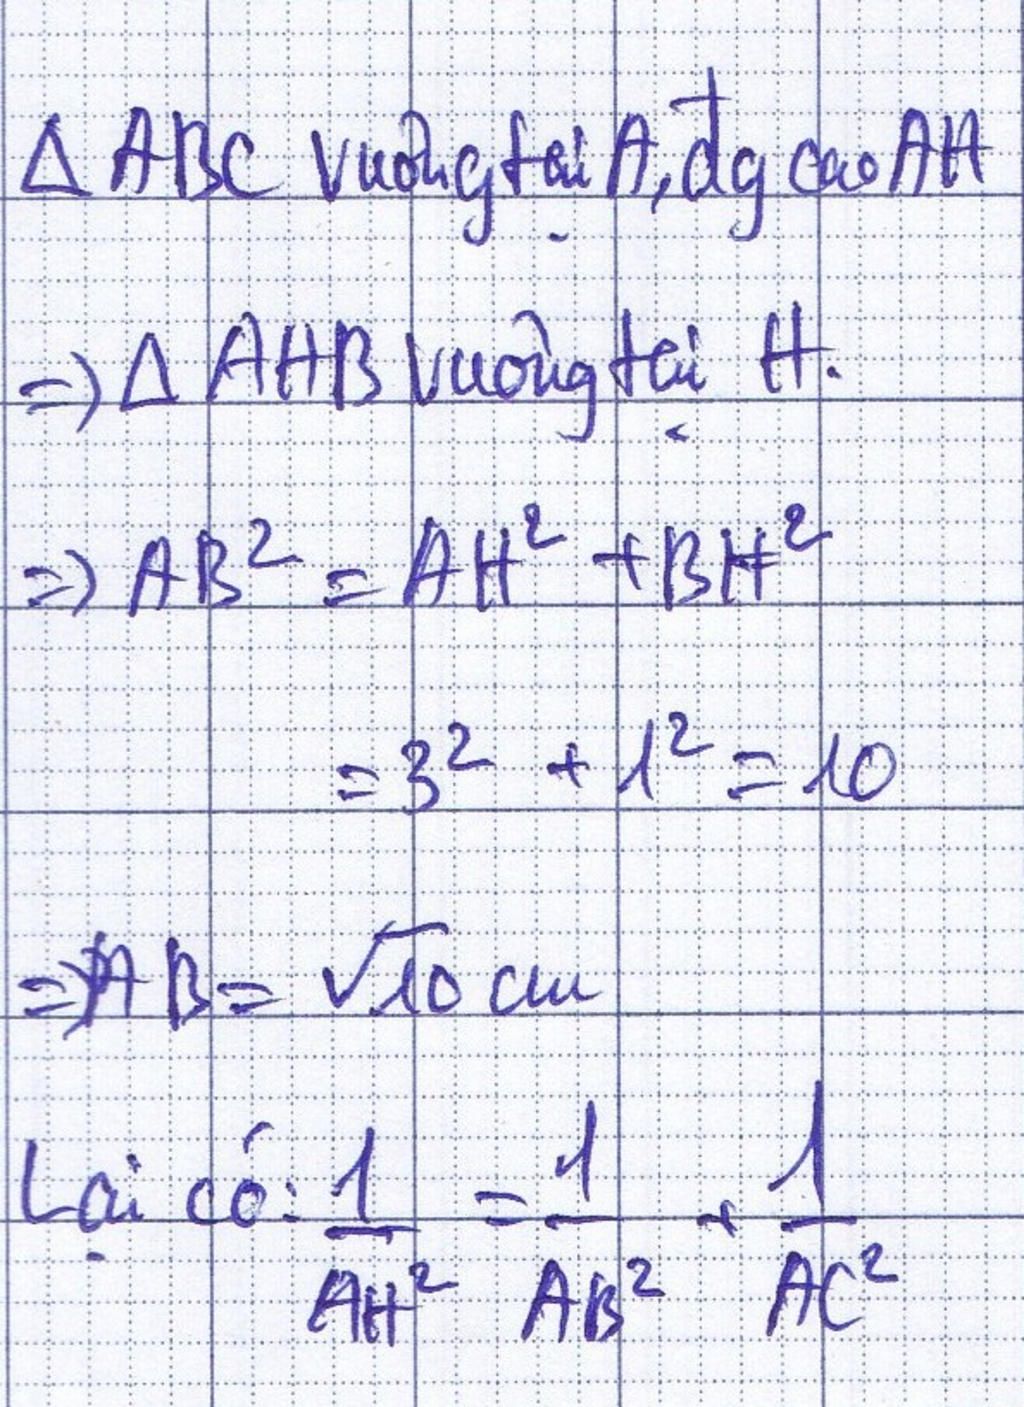 Δ ABC vuông tại A, đg cao AH
=> Δ AHB vuông tại H.
=> AB² = AH² + BH²
= 3² + 1² = 10
=> AB = √10 cm
Lại có: 1/AH² = 1/AB² + 1/AC²